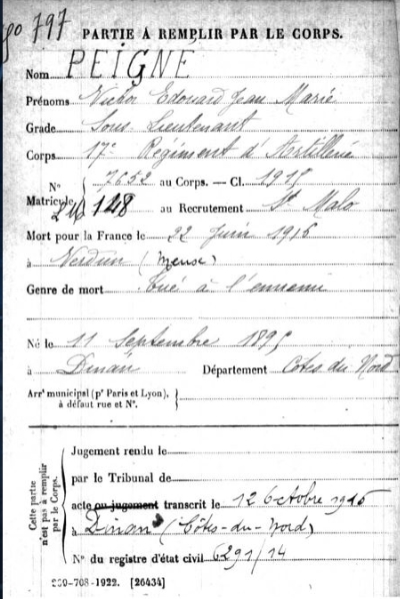 797
PARTIE À REMPLIR PAR LE CORPS.
Nom PEIGNE
Prénoms Victor Edouard Jean Marie
Grade Sous Lieutenant
Corps 17e Régiment d'Artillerie
N° 7652 au Corps. — Cl. 1915
Matricule 148 au Recrutement St Malo
Mort pour la France le 22 Juin 1916
à Verdun (Meuse)
Genre de mort Tué à l'ennemi
Né le 11 Septembre 1895
à Dinan Département Côtes du Nord
Arrt municipal (pr Paris et Lyon),
à défaut rue et N°.
Cette partie
n'est pas à remplir
par le Corps.
Jugement rendu le
par le Tribunal de
acte ou jugement transcrit le 12 Octobre 1916
à Dinan (Côtes-du-Nord)
N° du registre d'état civil 6291/14
-708-1922. [26434]